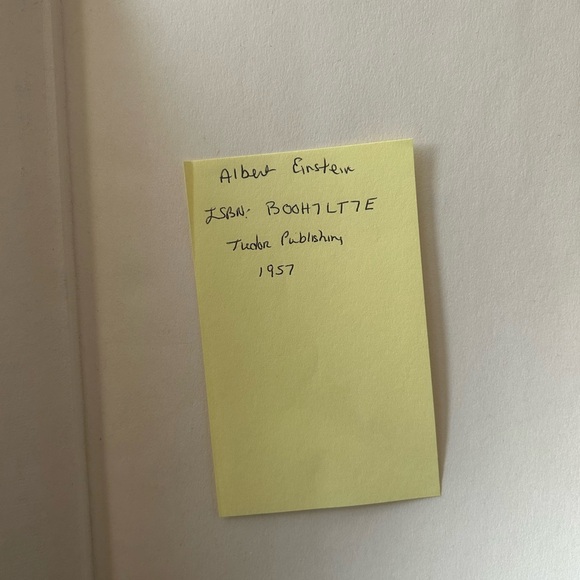 Albert Einstein
ISBN: B00H7LT7E
Tudor Publishing
1957